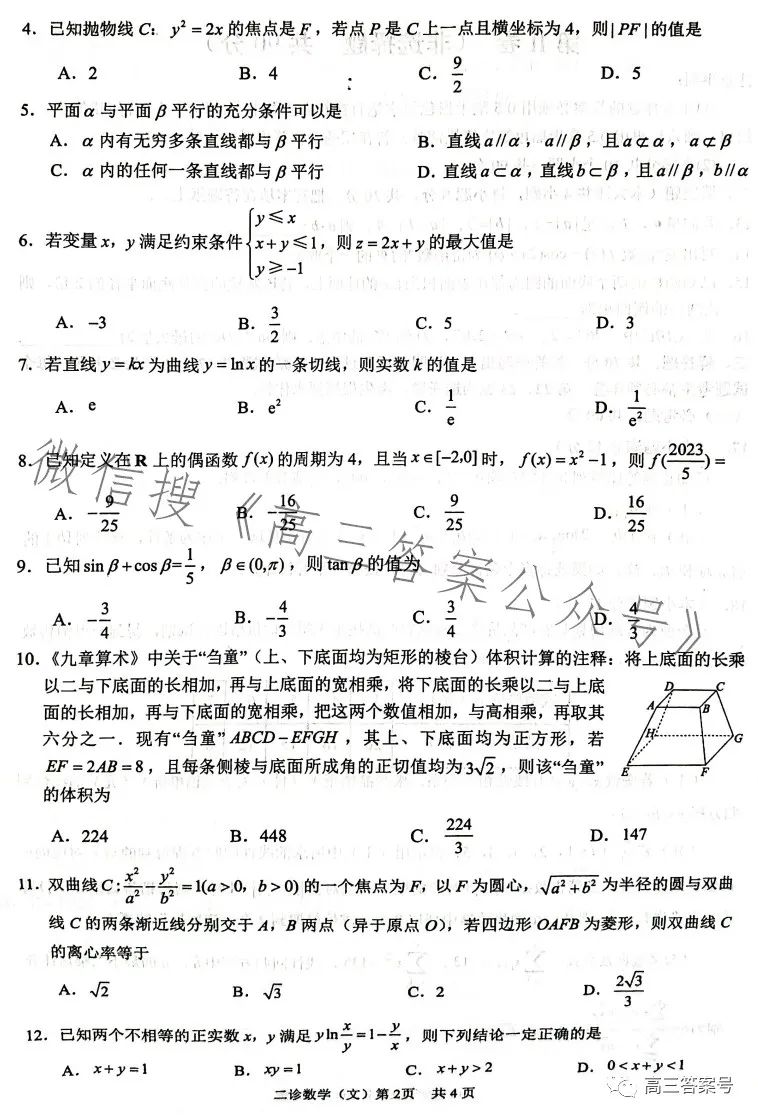 4. 已知抛物线 C: y² = 2x 的焦点是 F，若点 P 是 C 上一点且横坐标为 4，则|PF|的值是
A. 2 B. 4 C. 9/2 D. 5
5. 平面α与平面β平行的充分条件可以是
A. α内有无穷多条直线都与β平行 B. 直线a//α，a//β，且a⊄α，a⊄β
C. α内的任何一条直线都与β平行 D. 直线a⊂α，直线b⊂β，且a//β，b//α
6. 若变量 x，y 满足约束条件{y≤x
x+y≤1，则 z=2x+y 的最大值是
y≥-1
A. -3 B. 3/2 C. 5 D. 3
7. 若直线 y=kx 为曲线 y=ln x 的一条切线，则实数 k 的值是
A. e B. e² C. 1/e D. 1/e²
8. 已知定义在 R 上的偶函数 f(x) 的周期为 4，且当 x∈[-2,0] 时，f(x)=x²-1，则 f(2023/5)=
A. -9/25 B. -16/25 C. 9/25 D. 16/25
9. 已知 sin β+cos β=1/5，β∈(0,π)，则 tan β 的值为
A. -3/4 B. -4/3 C. 3/4 D. 4/3
10.《九章算术》中关于“刍童”（上、下底面均为矩形的棱台）体积计算的注释：将上底面的长乘
以二与下底面的长相加，再与上底面的宽相乘，将下底面的长乘以二与上底
面的长相加，再与下底面的宽相乘，把这两个数值相加，与高相乘，再取其
六分之一．现有“刍童”ABCD-EFGH，其上、下底面均为正方形，若
EF=2AB=8，且每条侧棱与底面所成角的正切值均为3√2，则该“刍童”
的体积为
D C
A B
H G
E F
A. 224 B. 448 C. 224/3 D. 147
11. 双曲线 C: x²/a² - y²/b² =1(a>0，b>0) 的一个焦点为 F，以 F 为圆心，√(a²+b²) 为半径的圆与双曲
线 C 的两条渐近线分别交于 A，B 两点（异于原点 O），若四边形 OAFB 为菱形，则双曲线 C
的离心率等于
A. √2 B. √3 C. 2 D. 2√3/3
12. 已知两个不相等的正实数 x，y 满足 y ln x/y =1- y/x，则下列结论一定正确的是
A. x+y=1 B. xy=1 C. x+y>2 D. 0<x+y<1
二诊数学（文）第 2页 共 4 页
微信搜《高三答案公众号》
高三答案号